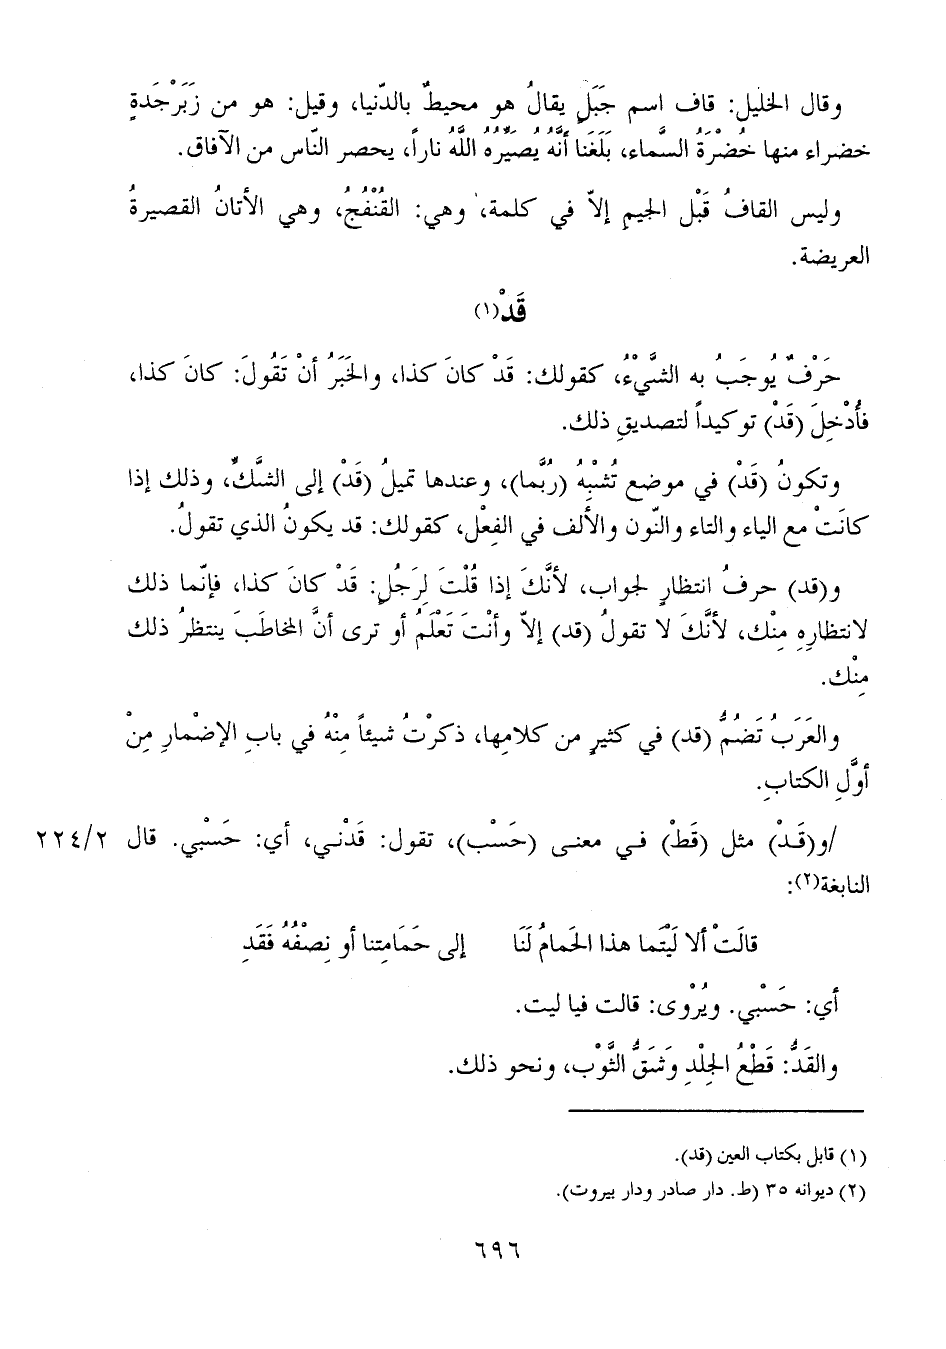 وقال الخليل: قاف اسم جَبَلٍ يقالُ هو محيطٌ بالدّنيا، وقيل: هو من زَبَرْجَدةٍ
خضراء منها خُضْرَةُ السَّماء، بَلَغَنا أنَّهُ يُصَيِّرُه اللَّهُ ناراً، يحصر النّاس من الآفاق.
وليس القافُ قَبْل الجيمِ إلاّ في كلمة، وهي: القُنْفُجُ، وهي الأتانُ القصيرةُ
العريضة.
قَدْ(١)
حَرْفٌ يُوجَبُ به الشَّيْءُ، كقولك: قَدْ كانَ كذا، والخَبَرُ أنْ تَقُولَ: كانَ كذا،
فأُدْخِلَ (قَدْ) توكيداً لتصديقِ ذلك.
وتكونُ (قَدْ) في موضع تُشْبِهُ (رُبَّما)، وعندها تميلُ (قَدْ) إلى الشَّكِّ، وذلك إذا
كانَتْ مع الياء والتاء والنّون والألف في الفِعْل، كقولك: قد يكونُ الذي تقولُ.
و(قد) حرفُ انتظارٍ لجواب، لأنَّكَ إذا قُلْتَ لِرَجُلٍ: قَدْ كانَ كذا، فإنّما ذلك
لانتظارِهِ مِنْك، لأنَّكَ لا تقولُ (قد) إلاّ وأنْتَ تَعْلَمُ أو ترى أنَّ المخاطَبَ ينتظرُ ذلك
مِنْك.
والعَرَبُ تَضُمُّ (قد) في كثيرٍ من كلامِها، ذكرْتُ شيئاً مِنْهُ في بابِ الإضْمارِ مِنْ
أوَّلِ الكتابِ.
/و(قَـدْ) مثل (قَطْ) فـي معنـى (حَسْب)، تقول: قَدْنـي، أي: حَسْبي. قال ٢٢٤/٢
النابغة(٢):
قالَتْ ألا لَيْتَما هذا الحَمامُ لَنَا إلى حَمَامتِنا أو نِصْفُهُ فَقَدِ
أي: حَسْبي. ويُرْوى: قالت فيا ليت.
والقَدُّ: قَطْعُ الجِلْدِ وَشَقُّ الثَّوْب، ونحو ذلك.
(١) قابل بكتاب العين (قد).
(٢) ديوانه ٣٥ (ط. دار صادر ودار بيروت).
٦٩٦